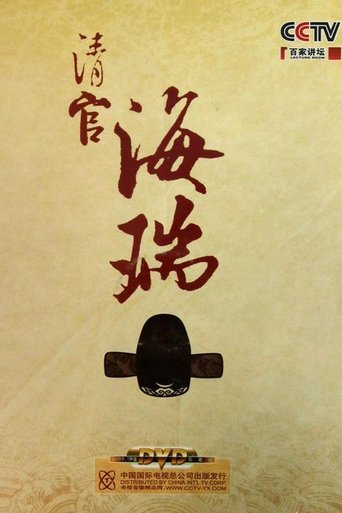 CCTV
百家讲坛
LECTURE ROOM
清官
海瑞
DVD
中国国际电视总公司出版发行
DISTRIBUTED BY CHINA INT'L TV CORP.
央视音像精品网:WWW.CCTV-YX.COM